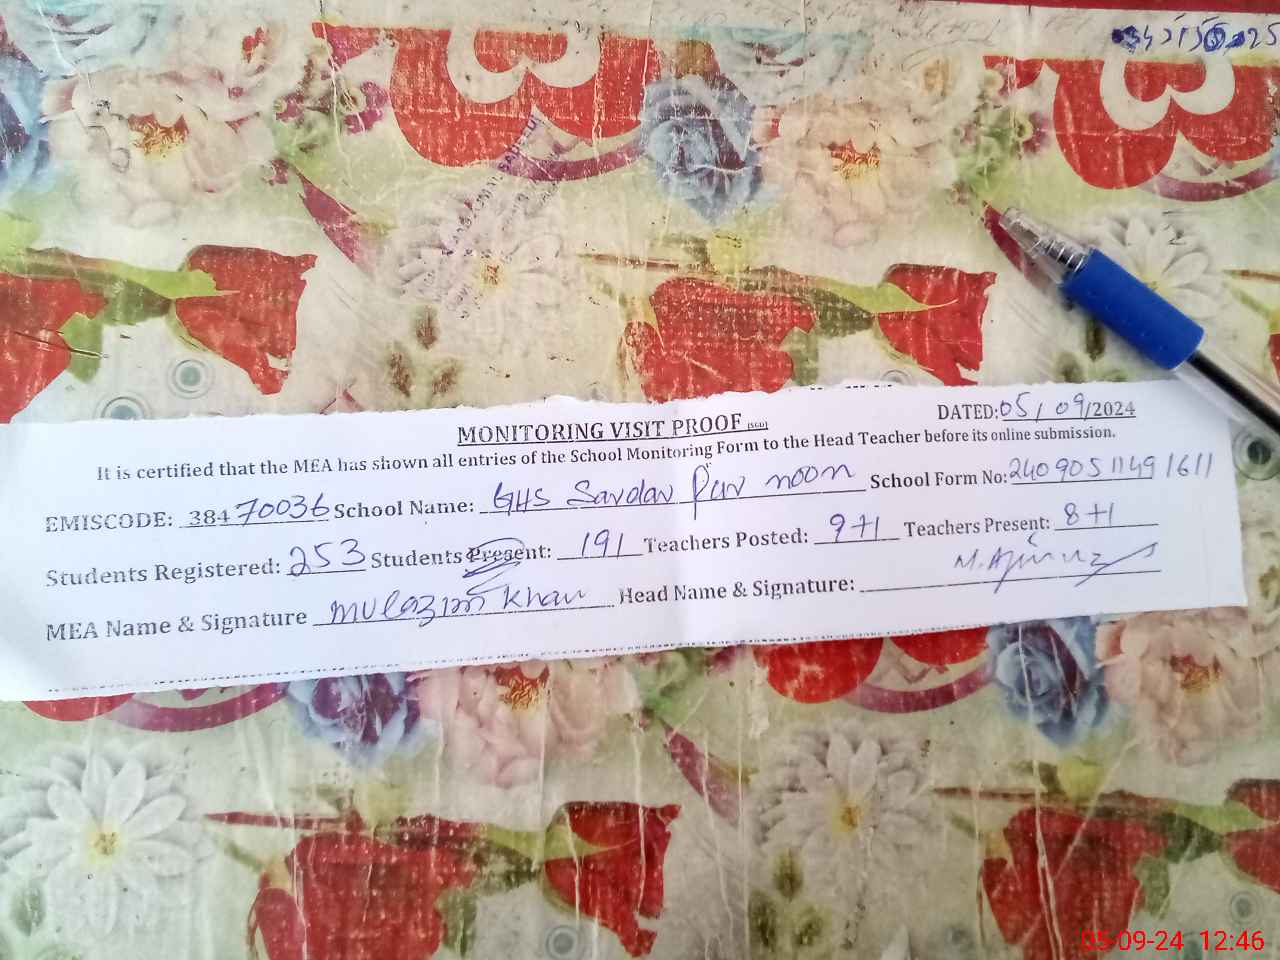 MONITORING VISIT PROOF (SGD)
DATED: 05/09/2024
It is certified that the MEA has shown all entries of the School Monitoring Form to the Head Teacher before its online submission.
EMISCODE: 38470036 School Name: GHS Sardar Pur noon School Form No: 24090511491611
Students Registered: 253 Students Present: 191 Teachers Posted: 9+1 Teachers Present: 8+1
MEA Name & Signature mulazim Khan Head Name & Signature:
05-09-24 12:46